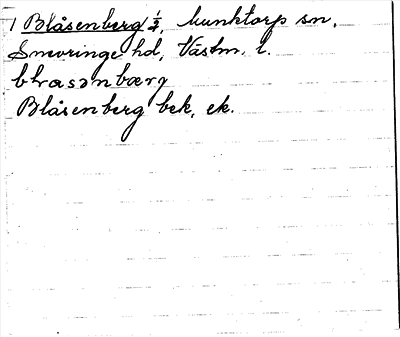 1 Blåsenberg 1/4, Munktorp sn,
Snevringe hd, Västm. l.
blåsənbærj
Blåsenberg bek, ek.